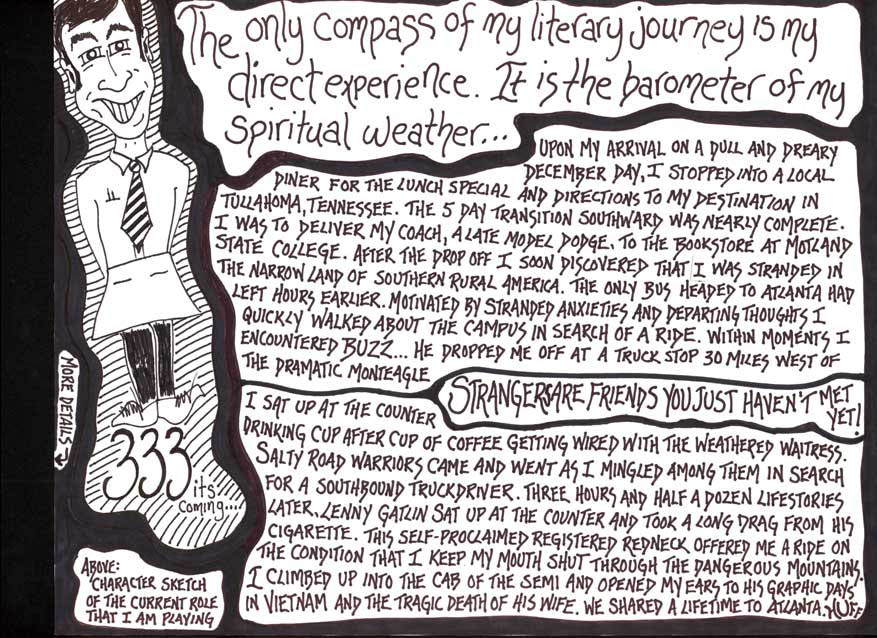 The only compass of my literary journey is my
direct experience. It is the barometer of my
spiritual weather...
UPON MY ARRIVAL ON A DULL AND DREARY
DECEMBER DAY, I STOPPED INTO A LOCAL
DINER FOR THE LUNCH SPECIAL AND DIRECTIONS TO MY DESTINATION IN
TULLAHOMA, TENNESSEE. THE 5 DAY TRANSITION SOUTHWARD WAS NEARLY COMPLETE.
I WAS TO DELIVER MY COACH, A LATE MODEL DODGE, TO THE BOOKSTORE AT MOTLAND
STATE COLLEGE. AFTER THE DROP OFF I SOON DISCOVERED THAT I WAS STRANDED IN
THE NARROW LAND OF SOUTHERN RURAL AMERICA. THE ONLY BUS HEADED TO ATLANTA HAD
LEFT HOURS EARLIER. MOTIVATED BY STRANDED ANXIETIES AND DEPARTING THOUGHTS I
QUICKLY WALKED ABOUT THE CAMPUS IN SEARCH OF A RIDE. WITHIN MOMENTS I
ENCOUNTERED BUZZ... HE DROPPED ME OFF AT A TRUCK STOP 30 MILES WEST OF
THE DRAMATIC MONTEAGLE
STRANGERS ARE FRIENDS YOU JUST HAVEN'T MET
YET!
I SAT UP AT THE COUNTER
DRINKING CUP AFTER CUP OF COFFEE GETTING WIRED WITH THE WEATHERED WAITRESS.
SALTY ROAD WARRIORS CAME AND WENT AS I MINGLED AMONG THEM IN SEARCH
FOR A SOUTHBOUND TRUCKDRIVER. THREE HOURS AND HALF A DOZEN LIFESTORIES
LATER, LENNY GATLIN SAT UP AT THE COUNTER AND TOOK A LONG DRAG FROM HIS
CIGARETTE. THIS SELF-PROCLAIMED REGISTERED REDNECK OFFERED ME A RIDE ON
THE CONDITION THAT I KEEP MY MOUTH SHUT THROUGH THE DANGEROUS MOUNTAINS.
I CLIMBED UP INTO THE CAB OF THE SEMI AND OPENED MY EARS TO HIS GRAPHIC DAYS
IN VIETNAM AND THE TRAGIC DEATH OF HIS WIFE. WE SHARED A LIFETIME TO ATLANTA. HUFF
MORE DETAILS
333
its
coming...
ABOVE:
CHARACTER SKETCH
OF THE CURRENT ROLE
THAT I AM PLAYING